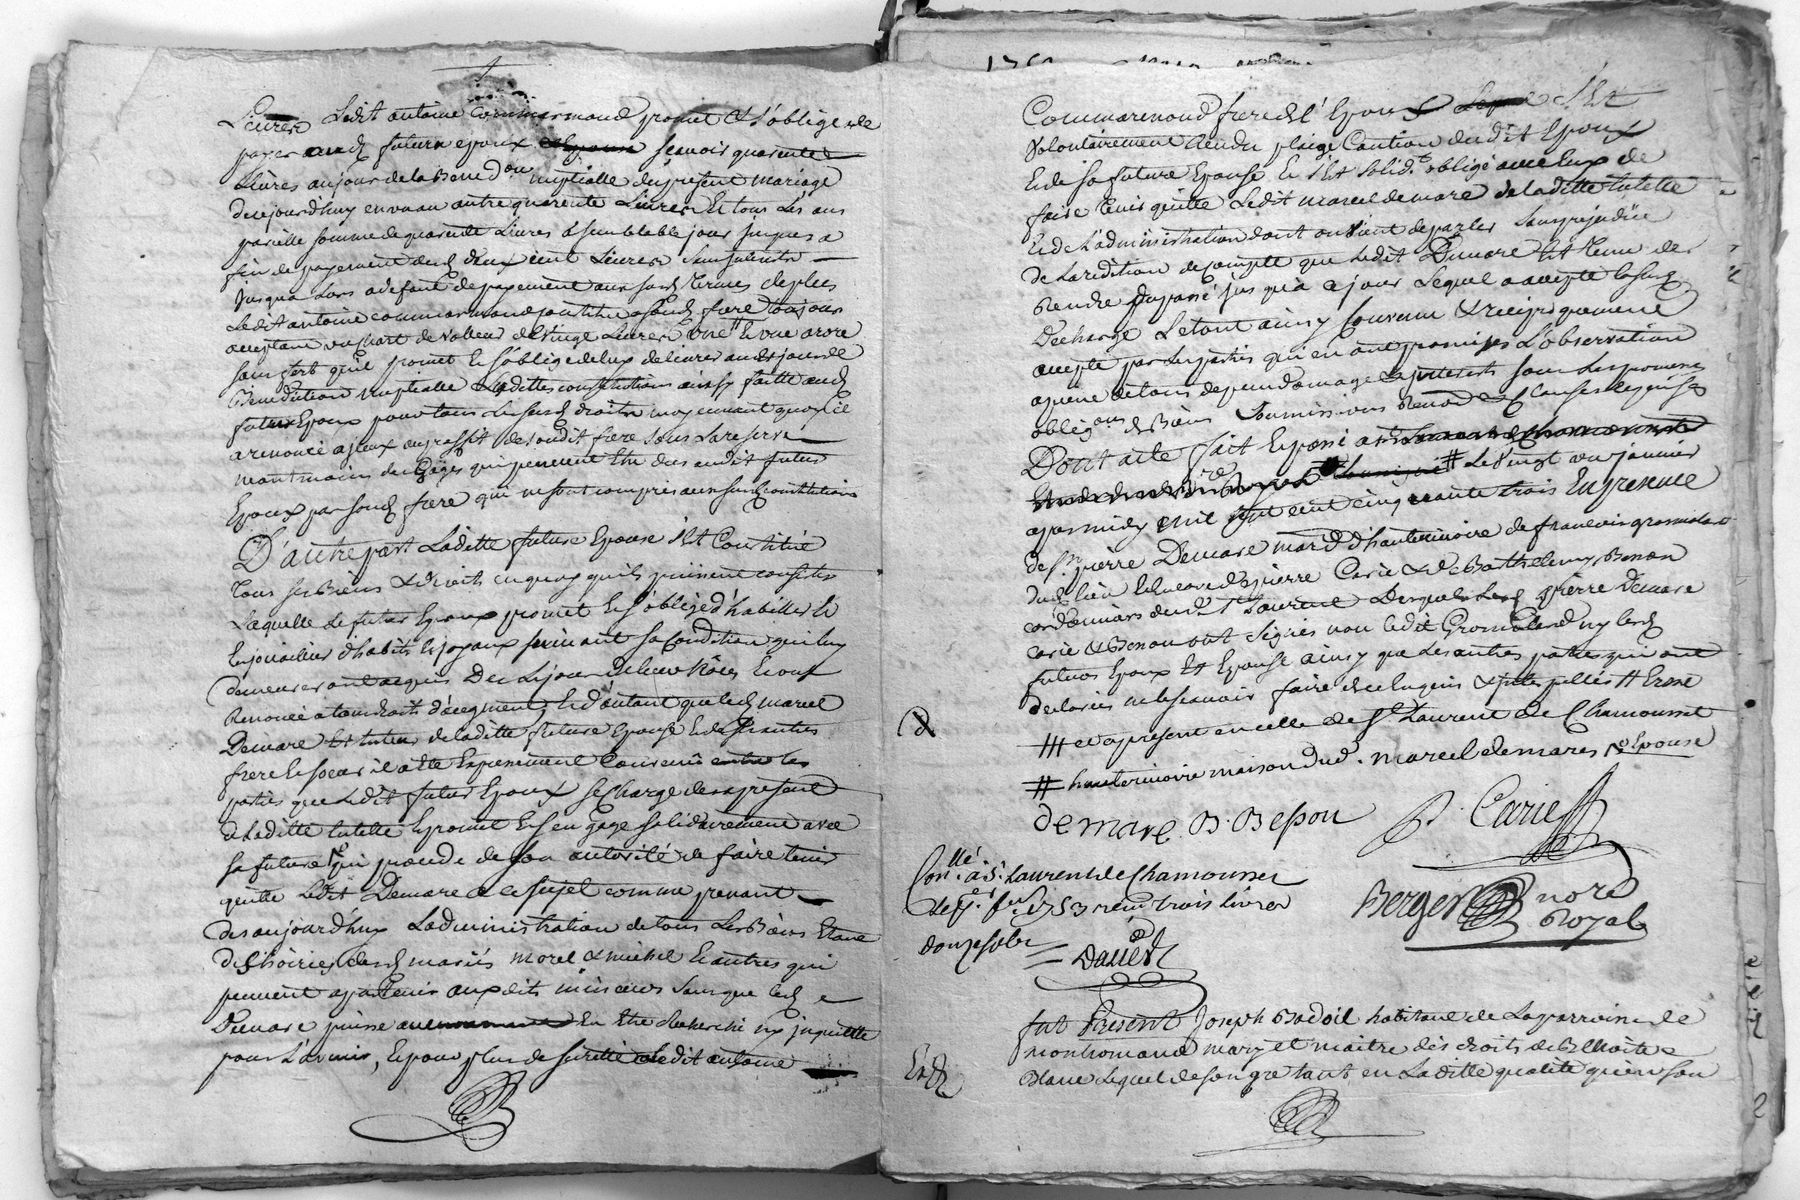 Livres Ledit antoine Commarmond promet et s'oblige de
payer aud futur epoux scavoir quarente
Livres au jour de la Bened.on nuptialle du present mariage
de ce jourd'huy en un an autre quarente Livres Et tous Les ans
pareille somme de quarente Livres a semblable jour jusques a
fin de payement desd deux cent Livres sans interets
jusqu'a Lors a defaut de payement aux susd termes de plus
Ledit antoine commarmond constitue a sond frere toujours
acceptant un chart de valleur de vingt Livres une Et une arare
sans fert qu'il promet Et s'oblige de luy delivrer aud jour de
Benediction Nuptialle Lesdittes constitutions ainsy faitte aud
futur Epoux pour tous Les susd droits moyennant quoy il
a renoncé a iceux au proffit de soudit frere sous La reserve
neantmoins des Gages qui peuvent Etre dus audit futur
Epoux par soud frere qui ne sont compris aux susd constitutions
D'autre part Laditte future Epouse s'Est Constitué
Tous ses Biens et droits en quoy qu'ils puissent consister
Laquelle Le futur Epoux promet Et s'oblige d'habiller Et
Enjoailler d'habits Et joyaux suivant sa Condition qui luy
demeureront acquis Des Le jour de leur Nôces Et ont
Renoncé a tous droits d'acegment, Et d'autant que led marcel
Demare Est tuteur de laditte future Epouse Et de ses autres
frere Et soeur il a Eté Expressement Convenu entre les
parties que Ledit futur Epoux se Charge des a present
de Laditte tutelle Et promet Et s'engage solidairement avec
sa future qui procede de son autorité de faire tenir
quitte Ledit Demare a ce sujet comme prenant
des aujourd'huy L'administration de tous Les Biens Etant
des hoiries desd mariés morel et michel Et autres qui
peuvent appartenir auxdits mineurs sans que led
Demare puisse En Etre Recherché ny inquietté
pour L'avenir, Et pour plus de sureté Ledit antoine
Commarmond frere de l'Epoux s'Est
Volontairement Rendu pleige Caution dudit Epoux
Et de sa future Epouse Et s'Est solid.t obligé avec Eux de
faire tenir quitte Ledit marcel demare de laditte tutelle
Et de L'administration dont on vient de parler Sans prejudice
de La redition de Compte que Ledit Demare Est tenu de
Rendre du passé jusqu'a ce jour Lequel a accepté la susd
Decharge Le tout ainsy Convenu et reciproquement
accepté par Les parties qui en ont promises L'observation
a peine de tous depens domage Et interets sous Les pennes
oblig.ons de Biens Soumissions Renon et Clauses Requises
Dont acte fait Et passé a
# Le vingt un janvier
apres midy mil sept cent cinquante trois En presence
de S.r pierre Demare mard d'hauterivoire de francois gromolard
dud Lieu Et encore de pierre Carie et de Barthelemy Besson
cordonniers dud S.t Laurent Desquels Lesd pierre Demare
carie et Besson ont signés non Ledit Gromolard ny lesd
futurs Epoux Et Epouse ainsy que Les autres parties qui ont
declarés ne le scavoir faire de ce Enquis et interpellés
et a present en celle de S.t Laurent de Chamousset
# hauterivoire maison dud. marcel demares Epouse
demare B. Besson P. Carie
Con.llé à S.t Laurent de Chamousset
le p.er fev 1753 recu trois livres
douze sols
Daveyd
Berger nore
Royal
fut Present Joseph Badoil habitant de La parroisse de
montromand mary et maitre des droits de Benoite
Blanc Lequel de son gré tant en Laditte qualité qu'en son
Exd